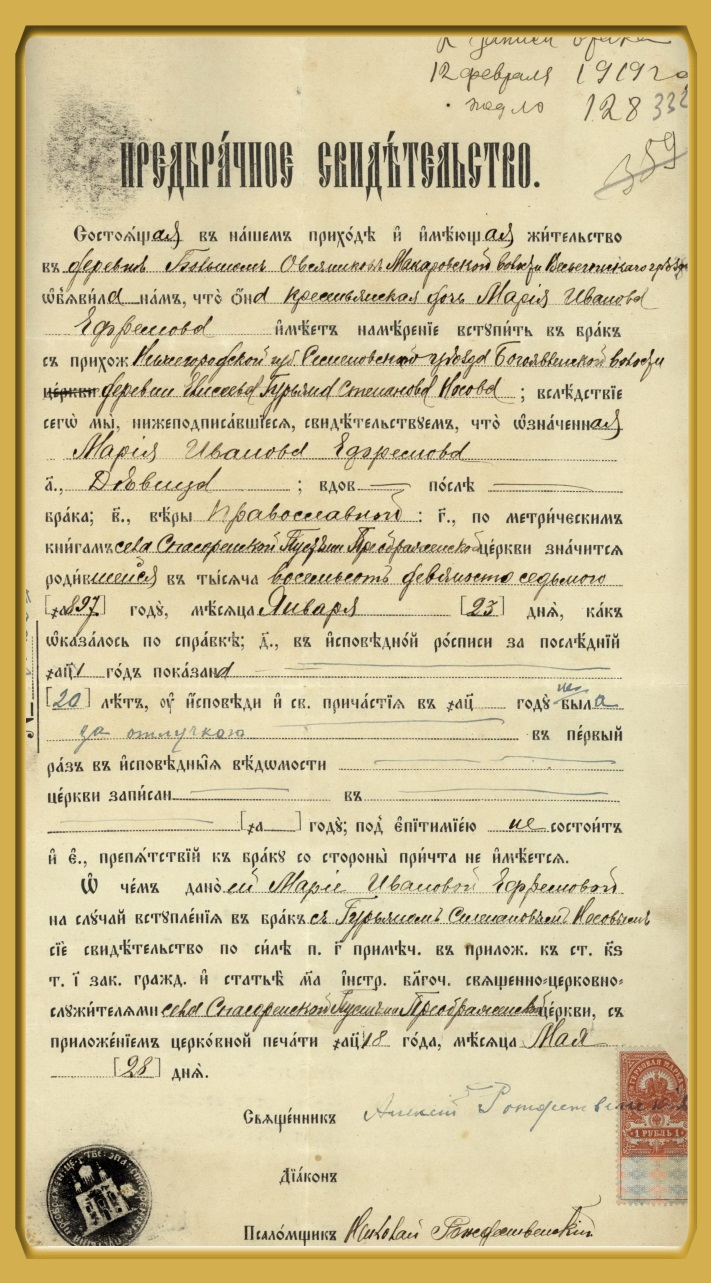 12 февраля 1919 го
128 332
359
ПРЕДБРА́ЧНОЕ СВИДѢ́ТЕЛЬСТВО.
Состоѧ́щая въ на́шемъ прихо́дѣ и҆ и҆мѣ́ющая жи́тельство
въ деревнѣ Большомъ Овсяниковѣ Макаровской волости Весьегонскаго уѣзда
ѡ҆б̾ѧви́ла на́мъ, что̀ ѻ҆на крестьянская дочь Марія Иванова
Ефремова и҆мѣ́етъ намѣ́реніе вступи́ть въ бра́къ
съ прихож Нижегородской губ Семеновского уѣзда Богоявленской волости
це́ркви деревни Елисеева Гурьяна Степанова Носова ; всл́ѣдствіе
сегѡ̀ мы̀, нижеподписа́вшіесѧ, свидѣ́тельствуемъ, что̀ ѡ҆зна́ченная
Марія Иванова Ефремова
а҃., Дѣвица ; вдов по́слѣ
бра́ка; в҃., вѣ́ры Православной : г҃., по метри́ческимъ
кни́гамъ села Спасоренской Пустыни Преображенской це́ркви зна́читсѧ
роди́вшейся въ ты́сѧча восемьсотъ девяносто седьмого
[҂а897] го́дꙋ, мѣ́сѧца Января [23] днѧ̀, ка́къ
ѡ҆каза́лось по спра́вкѣ; д҃., въ и҆сповѣ́дной ро́списи за послѣ́дній
҂ац҃і го́дъ пока́зана
[20] лѣ́тъ, ᲂу҆ и҆́сповѣди и҆ св. прича́стіѧ въ ҂ац҃ годꙋ̀ не была
за отлучкою въ пе́рвый
ра́зъ въ и҆сповѣ́дныѧ вѣ́дѡмости
це́ркви запи́сан въ
[҂а ] годꙋ̀; под̾ є҆питимі́ею не состои́тъ
и҆ є҃., препѧ́тствій къ бра́кꙋ со стороны̀ при́чта не и҆мѣ́етсѧ.
Ѡ҆ че́мъ дано̀ сіи Маріе Ивановой Ефремовой
на слꙋ́чай вступле́ніѧ въ бра́къ съ Гурьяномъ Степановымъ Носовымъ
сіѐ свидѣ́тельство по си́лѣ п. г҃ примѣ́ч. въ прилож. къ ст. к҃ѕ
т. і҃ зак. гражд. и҆ статьѣ̀ м҃а і҆нстр. благоч. свѧще́нно-церко́вно-
служи́телѧми села Спасоренской Пустыни Преображенской це́ркви, съ
приложе́ніемъ церко́вной печа́ти ҂ац҃18 го́да, мѣ́сѧца Мая
[28] днѧ̀.
Свѧще́нникъ Алексій Рождественскій
1 РУБЛЬ 1
Дїа́конъ
Псало́мщикъ Николай Рождественскій